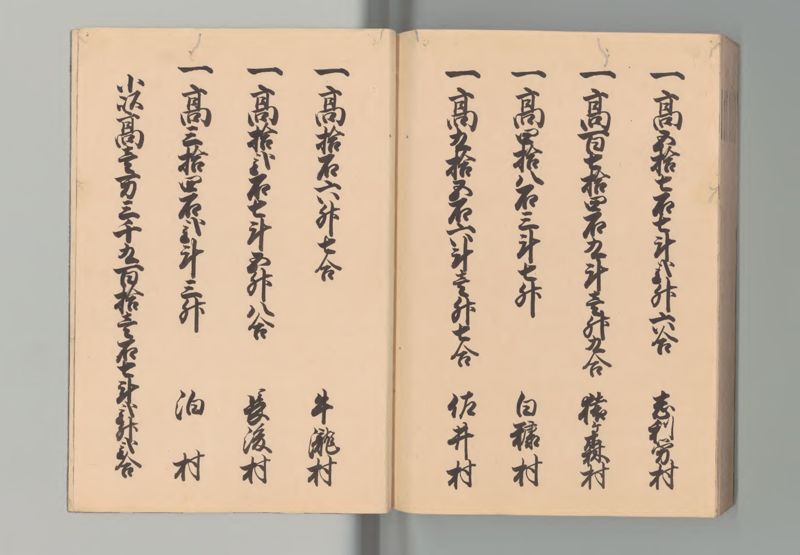 一高五拾七石七斗弐升六合 志利労村
一高百七拾四石九斗壱升九合 猿ヶ森村
一高四拾八石三斗七升 白糠村
一高九拾五石六斗壱升七合 佐井村
一高拾石六升七合 牛瀧村
一高拾弐石七斗五升八合 長後村
一高三拾四石弐斗三升 泊村
小以高壱万三千九百拾壱石七斗弐升弐合